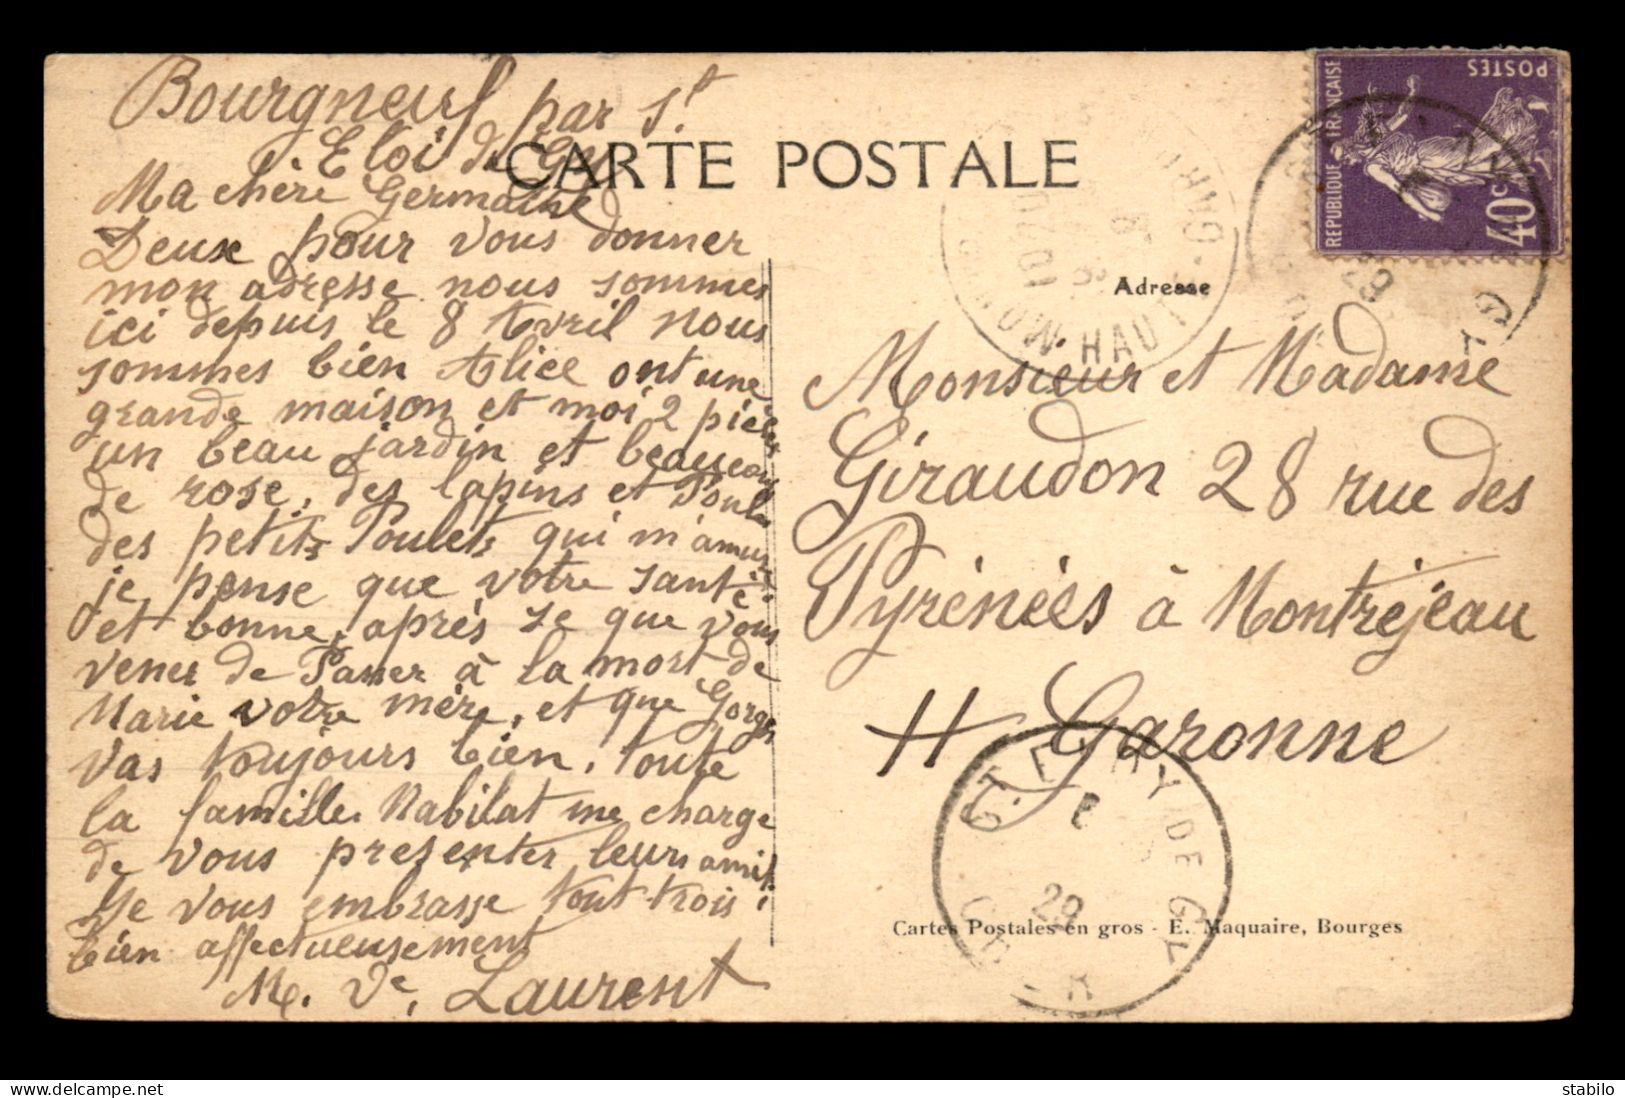 Bourgneuf par St
Eloi de Gy
CARTE POSTALE
Ma chère Germaine
Deux pour vous donner
mon adresse nous sommes
ici depuis le 8 Avril nous
sommes bien Alice ont une
grande maison et moi 2 pièces
un beau jardin et beaucoup
de rose, des lapins et Poules
des petits Poulets qui m'amuse
je pense que votre santé
et bonne, après se que vous
venez de Passer à la mort de
Marie votre mère, et que Gorges
vas toujours bien, toute
la famille Rabillat me charge
de vous presenter leurs amit.
Je vous embrasse tout trois
bien affectueusement
M. Ve, Laurent
REPUBLIQUE FRANÇAISE
POSTES
40c
29
HAUTE
Adresse
Monsieur et Madame
Giraudon 28 rue des
Pyrénées à Montréjeau
H Garonne
29
Cartes Postales en gros - E. Maquaire, Bourges
stabilo